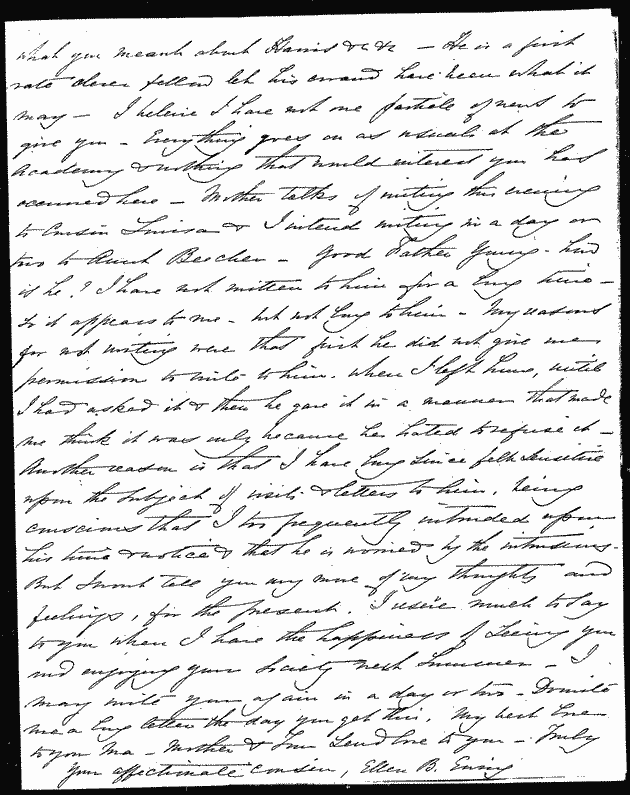 what you meant about Harris &c &c — He is a first
rate clever fellow let his errand have been what it
may — I believe I have not one particle of news to
give you — Everything goes on as usual at the
Academy & nothing that would interest you has
occurred here — Mother talks of writing this evening
to Cousin Louisa & I intend writing in a day or
two to Aunt Beecher — Good Father Young — how
is he? I have not written to him for a long time —
so it appears to me — but not long to him — My reasons
for not writing were that first he did not give me
permission to write to him, when I left home, until
I had asked it & then he gave it in a manner that made
me think it was only because he hated to refuse it —
Another reason is that I have long since felt sensitive
upon the subject of visits & letters to him, being
conscious that I too frequently intruded upon
his time & notice & that he is worried by the intrusions.
But I wont tell you any more of my thoughts and
feelings, for the present. I desire much to say
to you when I have the happiness of seeing you
and enjoying your society next Summer — I
may write you again in a day or two — Do write
me a long letter the day you get this. My best love
to you Ma — Mother & send love to you — Truly
Your affectionate cousin, Ellen B. Ewing